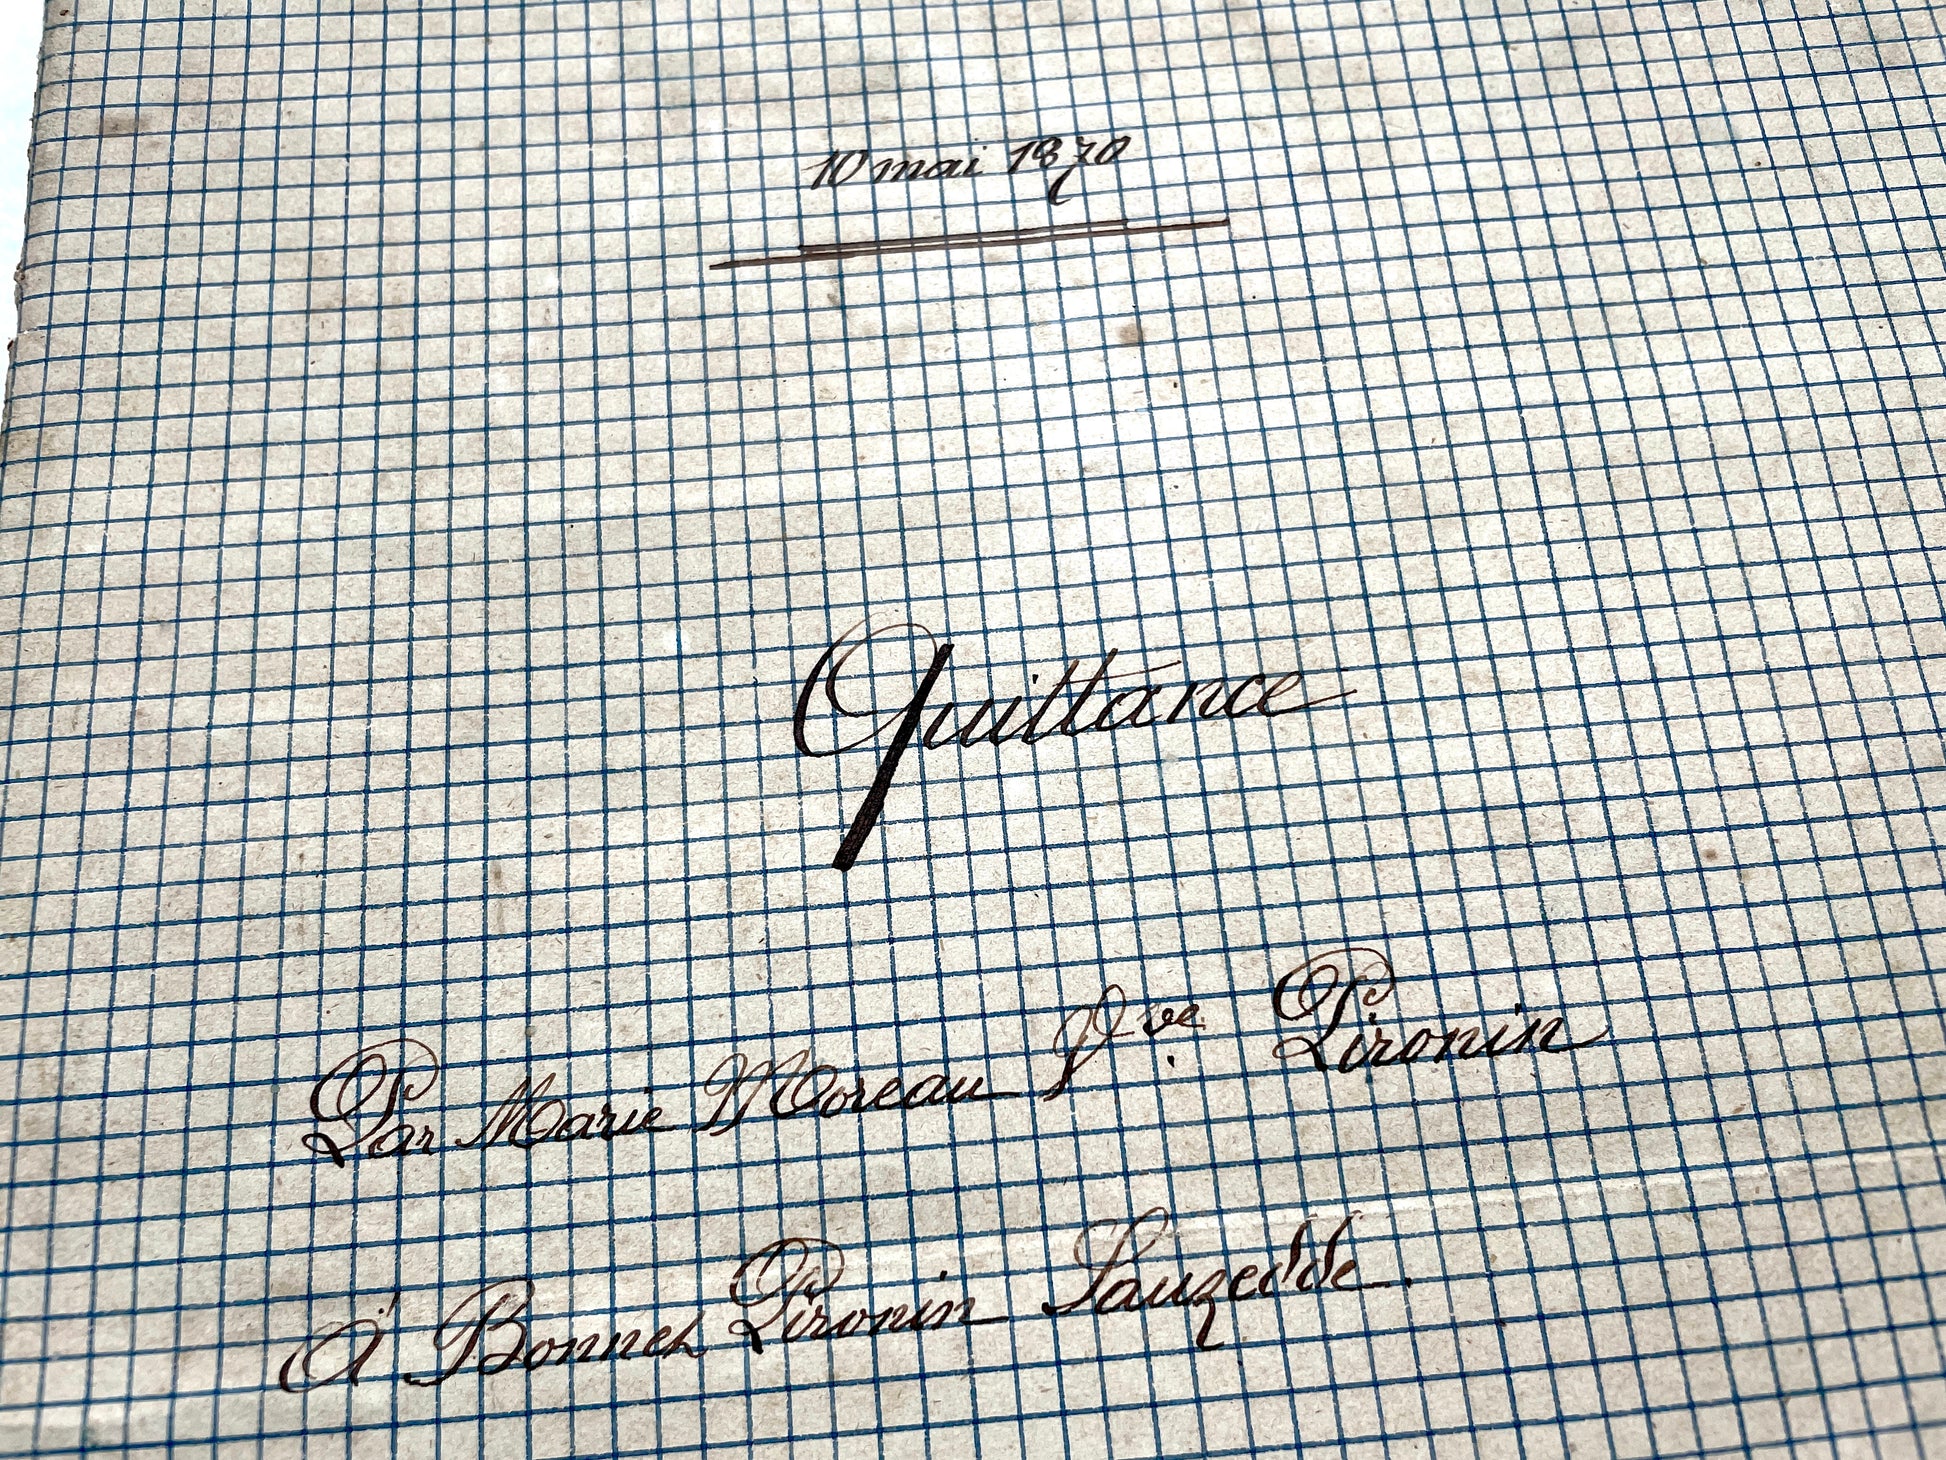 10 mai 1870
Quittance
Par Marie Moreau Vve Pironin
A Bonnet Pironin Sauzedde.